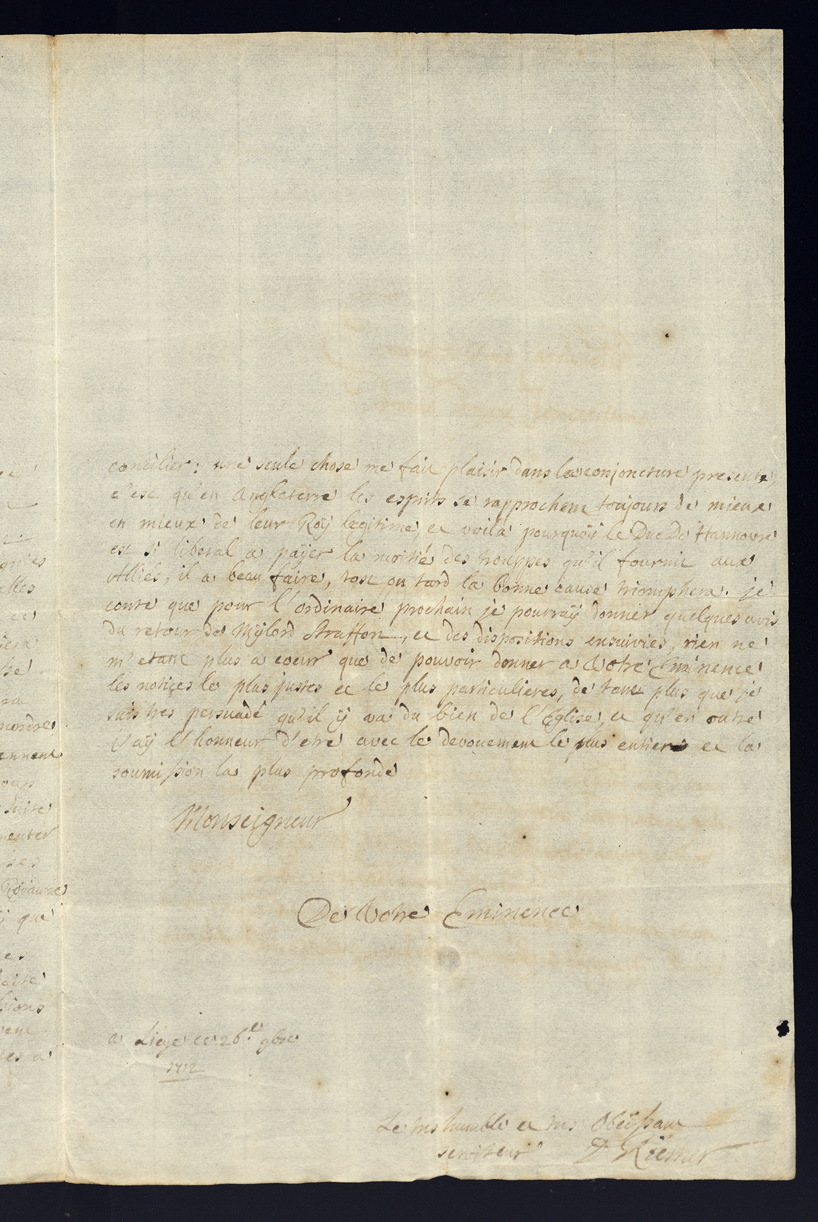 concilier: une seule chose me fait plaisir dans la conjoncture presente,
c'est qu'en Angleterre les esprits se rapprochent toujours de mieux
en mieux de leur Roÿ legitime et voila pourquoÿ le Duc De Hannovre
est si liberal a païer la moitié des trouppes qu'il fournit aux
Alliés, il a beau faire, tost ou tard la bonne cause triomphera. je
conte que pour l'ordinaire prochain je pourraÿ donner quelques avis
du retour de Mÿlord Straffort, et des dispositions ensuivies, rien ne
m'etant plus a coeur que de pouvoir donner a Votre Eminence
les notices le plus justes et le plus particulieres, de tant plus que je
suis tres persuadé qu'il ÿ va du bien de l'Eglise, et qu'en outre
j'aÿ l'honneur d'etre avec le devouement le plus entier et la
soumission la plus profonde
Monseigneur
De Votre Eminence
a Liege ce 26.e 9bre
1712
Le tres humble et tres Obeissant
serviteur